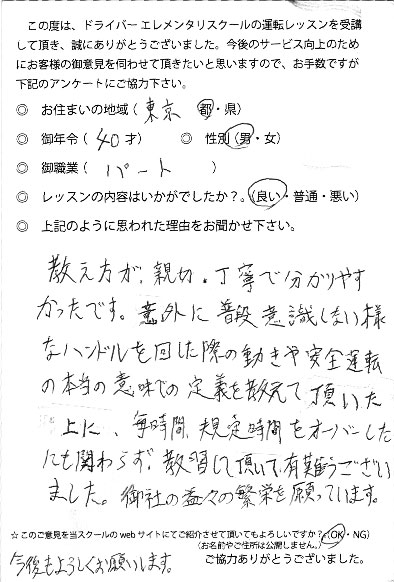 この度は、ドライバーエレメンタリスクールの運転レッスンを受講
して頂き、誠にありがとうございました。今後のサービス向上のため
にお客様の御意見を伺わせて頂きたいと思いますので、お手数ですが
下記のアンケートにご協力下さい。
◎ お住まいの地域(東京 都・県)
◎ 御年令(40才) ◎ 性別(男・女)
◎ 御職業(パート)
◎ レッスンの内容はいかがでしたか?。(良い・普通・悪い)
◎ 上記のように思われた理由をお聞かせ下さい。
教え方が、親切・丁寧で分かりやす
かったです。意外に普段意識しない様
なハンドルを回した際の動きや安全運転
の本当の意味での定義を教えて頂いた
上に、毎時間、規定時間をオーバーした
にも関わらず、教習して頂いて、有難うござい
ました。御社の益々の繁栄を願っています。
☆このご意見を当スクールのwebサイトにてご紹介させて頂いてもよろしいですか?(OK・NG)
(お名前やご住所は公開しません。)
今後もよろしくお願いします。
ご協力ありがとうございました。